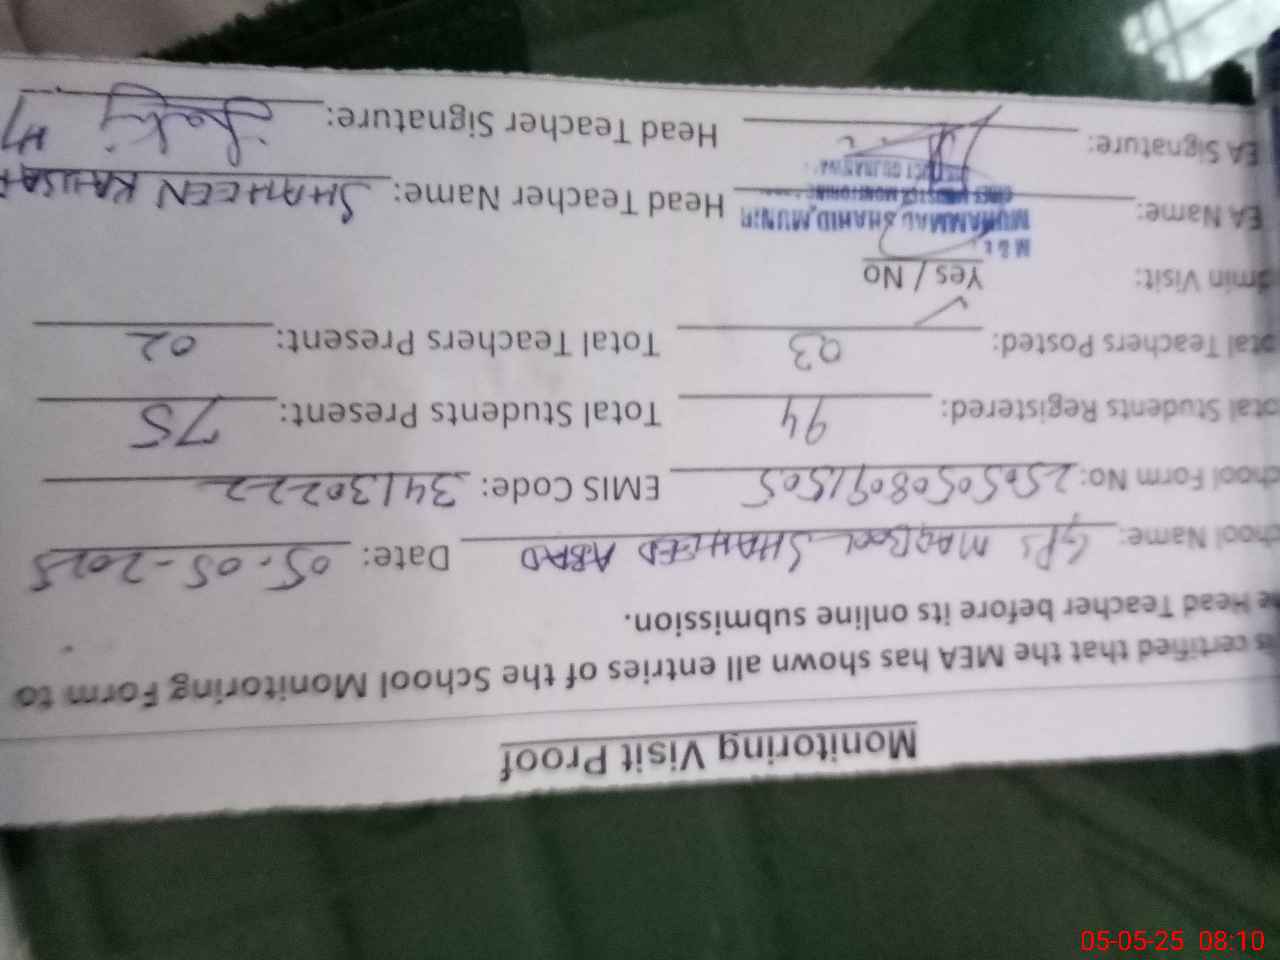 Monitoring Visit Proof
is certified that the MEA has shown all entries of the School Monitoring Form to
he Head Teacher before its online submission.
chool Name: GPS MAQBOOL SHAHEED ABAD Date: 05-05-2025
chool Form No: 25050508091505 EMIS Code: 34130222
otal Students Registered: 94 Total Students Present: 75
otal Teachers Posted: 03 Total Teachers Present: 02
dmin Visit: Yes / No
M & E
EA Name: MUHAMMAD SHAHID MUNIR Head Teacher Name: SHAHEEN KAUSAR
EA Signature: Head Teacher Signature:
05-05-25 08:10